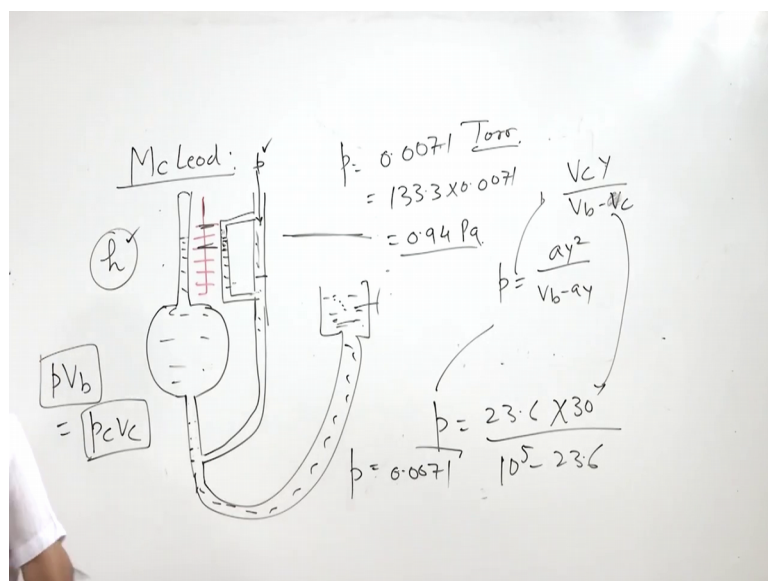 McLeod:
p
h
pVb
= pcVc
p = 0.0071 Torr.
= 133.3 x 0.0071
= 0.94 Pa
VcY
Vb-Vc
p = ay²
Vb-ay
p = 23.6 X 30
10⁵ - 23.6
p = 0.0071